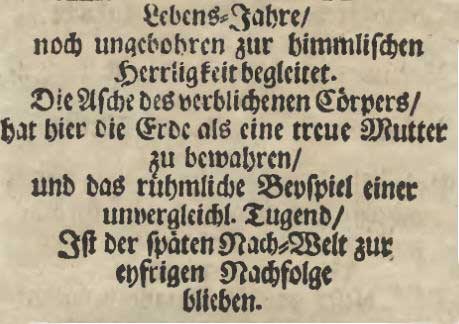 Lebens-Jahre/
noch ungebohren zur himmlischen
Herrligkeit begleitet.
Die Asche des verblichenen Cörpers/
hat hier die Erde als eine treue Mutter
zu bewahren/
und das rühmliche Beyspiel einer
unvergleichl. Tugend/
Ist der späten Nach-Welt zur
eyfrigen Nachfolge
blieben.